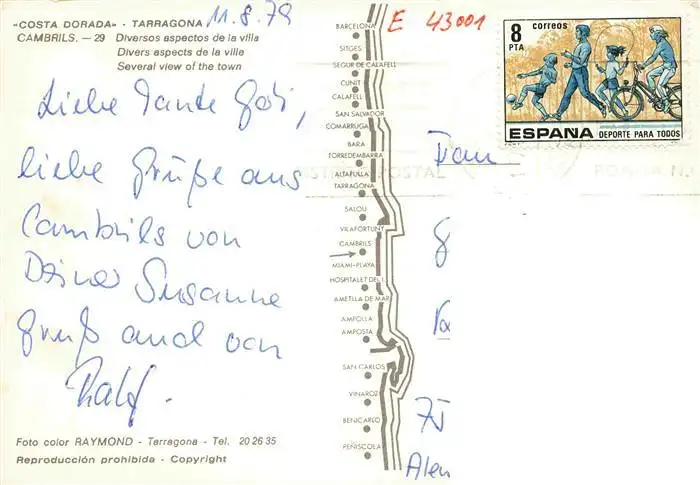 «COSTA DORADA» - TARRAGONA
11.8.79
CAMBRILS. — 29 Diversos aspectos de la villa
Divers aspects de la ville
Several view of the town
Liebe Tante Goti,
liebe Grüße aus
Cambrils von
Deiner Susanne
Gruß auch von
Ralf.
Foto color RAYMOND - Tarragona - Tel. 20 26 35
Reproducción prohibida - Copyright
BARCELONA
SITGES
SEGUR DE CALAFELL
CUNIT
CALAFELL
SAN SALVADOR
COMARRUGA
BARA
TORREDEMBARRA
ALTAFULLA
TARRAGONA
SALOU
VILAFORTUNY
CAMBRILS
MIAMI-PLAYA
HOSPITALET DEL I.
AMETLLA DE MAR
AMPOLLA
AMPOSTA
SAN CARLOS
VINAROZ
BENICARLO
PEÑISCOLA
E 43001
8 correos
PTA
ESPAÑA DEPORTE PARA TODOS
POSTAL
Frau